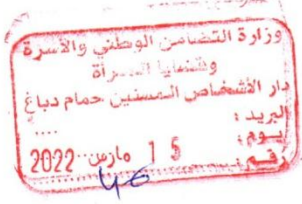 وزارة التضامن الوطني والأسرة
وقضايا المرأة
دار الأشخاص المسنين حمام دباغ
البريد :
يوم : 15 مارس 2022
رقم : 46